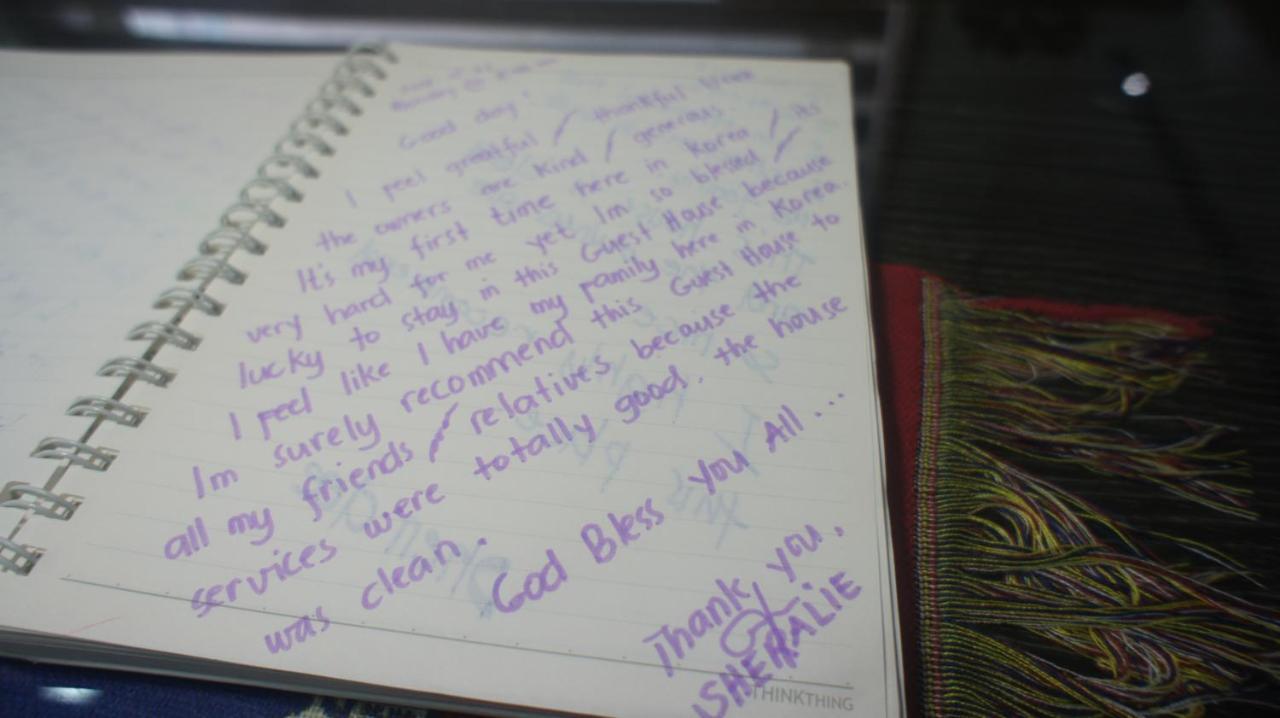 Good day!
I feel greatful / thankful
the owners are kind / generous.
It's my first time here in Korea / its
very hard for me yet Im so blessed /
lucky to stay in this Guest House because
I feel like I have my family here in Korea.
Im surely recommend this Guest House to
all my friends / relatives because the
services were totally good. the house
was clean.
God Bless you All...
Thank you,
SHERALIE
THINKTHING